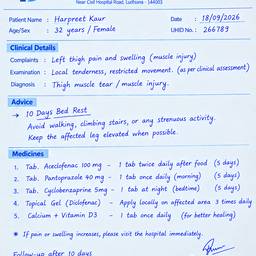 Near Civil Hospital Road, Ludhiana - 144003
Patient Name : Harpreet Kaur Date : 18/09/2026
Age/Sex : 32 years / Female UHID No. : 266789
Clinical Details
Complaints : Left thigh pain and swelling (muscle injury)
Examination : Local tenderness, restricted movement. (as per clinical assessment)
Diagnosis : Thigh muscle tear / muscle injury.
Advice
→ 10 Days Bed Rest
Avoid walking, climbing stairs, or any strenuous activity.
Keep the affected leg elevated when possible.
Medicines
1. Tab. Aceclofenac 100 mg - 1 tab twice daily after food (5 days)
2. Tab. Pantoprazole 40 mg - 1 tab once daily (morning) (5 days)
3. Tab. Cyclobenzaprine 5mg - 1 tab at night (bedtime) (5 days)
4. Topical Gel (Diclofenac) - Apply locally on affected area 3 times daily
5. Calcium + Vitamin D3 - 1 tab once daily (for better healing)
* If pain or swelling increases, please visit the hospital immediately.
Follow-up after 10 days